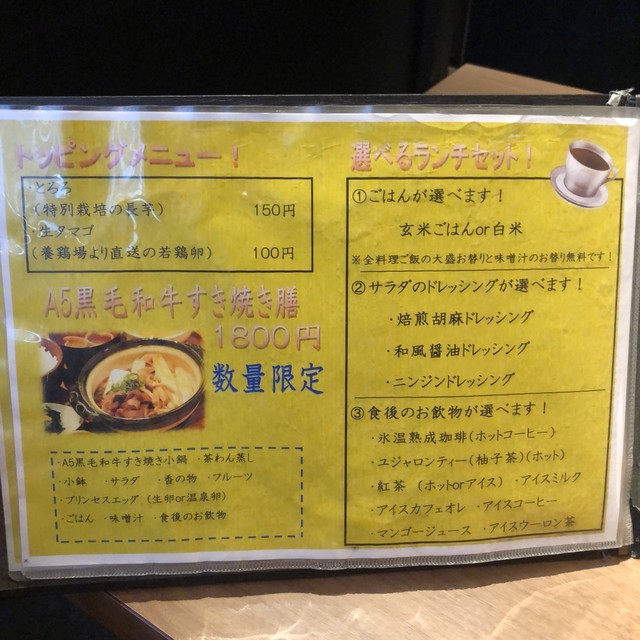 トッピングメニュー！
・とろろ
（特別栽培の長芋） 150円
・生タマゴ
（養鶏場より直送の若鶏卵） 100円
A5黒毛和牛すき焼き膳
1800円
数量限定
・A5黒毛和牛すき焼き小鍋 ・茶わん蒸し
・小鉢 ・サラダ ・香の物 ・フルーツ
・プリンセスエッグ （生卵or温泉卵）
・ごはん ・味噌汁 ・食後のお飲物
選べるランチセット！
①ごはんが選べます！
玄米ごはんor白米
※全料理ご飯の大盛お替りと味噌汁のお替り無料です！
②サラダのドレッシングが選べます！
・焙煎胡麻ドレッシング
・和風醤油ドレッシング
・ニンジンドレッシング
③食後のお飲物が選べます！
・氷温熟成珈琲（ホットコーヒー）
・ユジャロンティー（柚子茶）（ホット）
・紅茶 （ホットorアイス） ・アイスミルク
・アイスカフェオレ ・アイスコーヒー
・マンゴージュース ・アイスウーロン茶